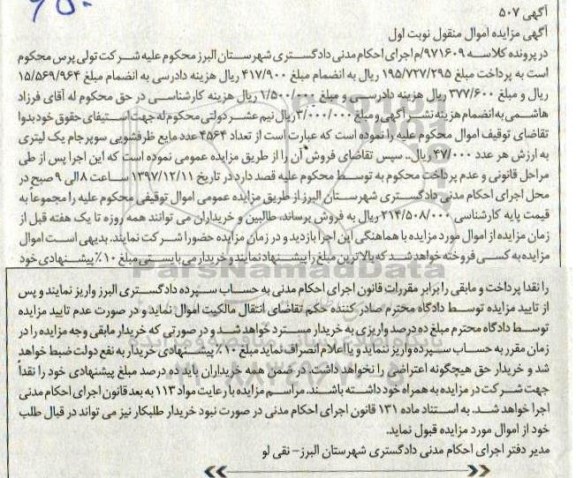 آگهی ۵۰۷
آگهی مزایده اموال منقول نوبت اول
در پرونده کلاسه ۹۷۱۶۰۹/م اجرای احکام مدنی دادگستری شهرستان البرز محکوم علیه شرکت تولی پرس محکوم
است به پرداخت مبلغ ۱۹۵/۷۲۷/۲۹۵ ریال به انضمام مبلغ ۴۱۷/۹۰۰ ریال هزینه دادرسی به انضمام مبلغ ۱۵/۵۶۹/۹۶۴
ریال و مبلغ ۳۷۷/۶۰۰ ریال هزینه دادرسی و مبلغ ۱/۵۰۰/۰۰۰ ریال هزینه کارشناسی در حق محکوم له آقای فرزاد
هاشمی به انضمام هزینه نشر آگهی و مبلغ ۲/۰۰۰/۰۰۰ ریال نیم عشر دولتی محکوم له جهت استیفای حقوق خود بدوا
تقاضای توقیف اموال محکوم علیه را نموده است که عبارت است از تعداد ۴۵۶۴ عدد مایع ظرفشویی سوپرجام یک لیتری
به ارزش هر عدد ۴۷/۰۰۰ ریال. سپس تقاضای فروش آن را از طریق مزایده عمومی نموده است که این اجرا پس از طی
مراحل قانونی و عدم پرداخت محکوم به توسط محکوم علیه قصد دارد در تاریخ ۱۳۹۷/۱۲/۱۱ ساعت ۸ الی ۹ صبح در
محل اجرای احکام مدنی دادگستری شهرستان البرز از طریق مزایده عمومی اموال توقیفی محکوم علیه را مجموعا به
قیمت پایه کارشناسی ۲۱۴/۵۰۸/۰۰۰ ریال به فروش برساند، طالبین و خریداران می توانند همه روزه تا یک هفته قبل از
زمان مزایده از اموال مورد مزایده با هماهنگی این اجرا بازدید و در زمان مزایده حضورا شرکت نمایند. بدیهی است اموال
مزایده به کسی فروخته خواهد شد که بالاترین مبلغ را پیشنهاد نمایند و خریدار می بایستی مبلغ ۱۰٪ پیشنهادی خود
را نقدا پرداخت و مابقی را برابر مقررات قانون اجرای احکام مدنی به حساب سپرده دادگستری البرز واریز نمایند و پس
از تایید مزایده توسط دادگاه محترم صادر کننده حکم تقاضای انتقال مالکیت اموال نماید و در صورت عدم تایید مزایده
توسط دادگاه محترم مبلغ ده درصد واریزی به خریدار مسترد خواهد شد و در صورتی که خریدار مابقی وجه مزایده را در
زمان مقرر به حساب سپرده واریز ننماید و یا اعلام انصراف نماید مبلغ ۱۰٪ پیشنهادی خریدار به نفع دولت ضبط خواهد
شد و خریدار حق هیچگونه اعتراضی را نخواهد داشت. در ضمن همه خریداران باید ده درصد مبلغ پیشنهادی خود را نقداً
جهت شرکت در مزایده به همراه خود داشته باشند. مراسم مزایده با رعایت مواد ۱۱۳ به بعد قانون اجرای احکام مدنی
اجرا خواهد شد. به استناد ماده ۱۳۱ قانون اجرای احکام مدنی در صورت نبود خریدار طلبکار نیز می تواند در قبال طلب
خود از اموال مورد مزایده قبول نماید.
مدیر دفتر اجرای احکام مدنی دادگستری شهرستان البرز- نقی لو
ParsNamadData